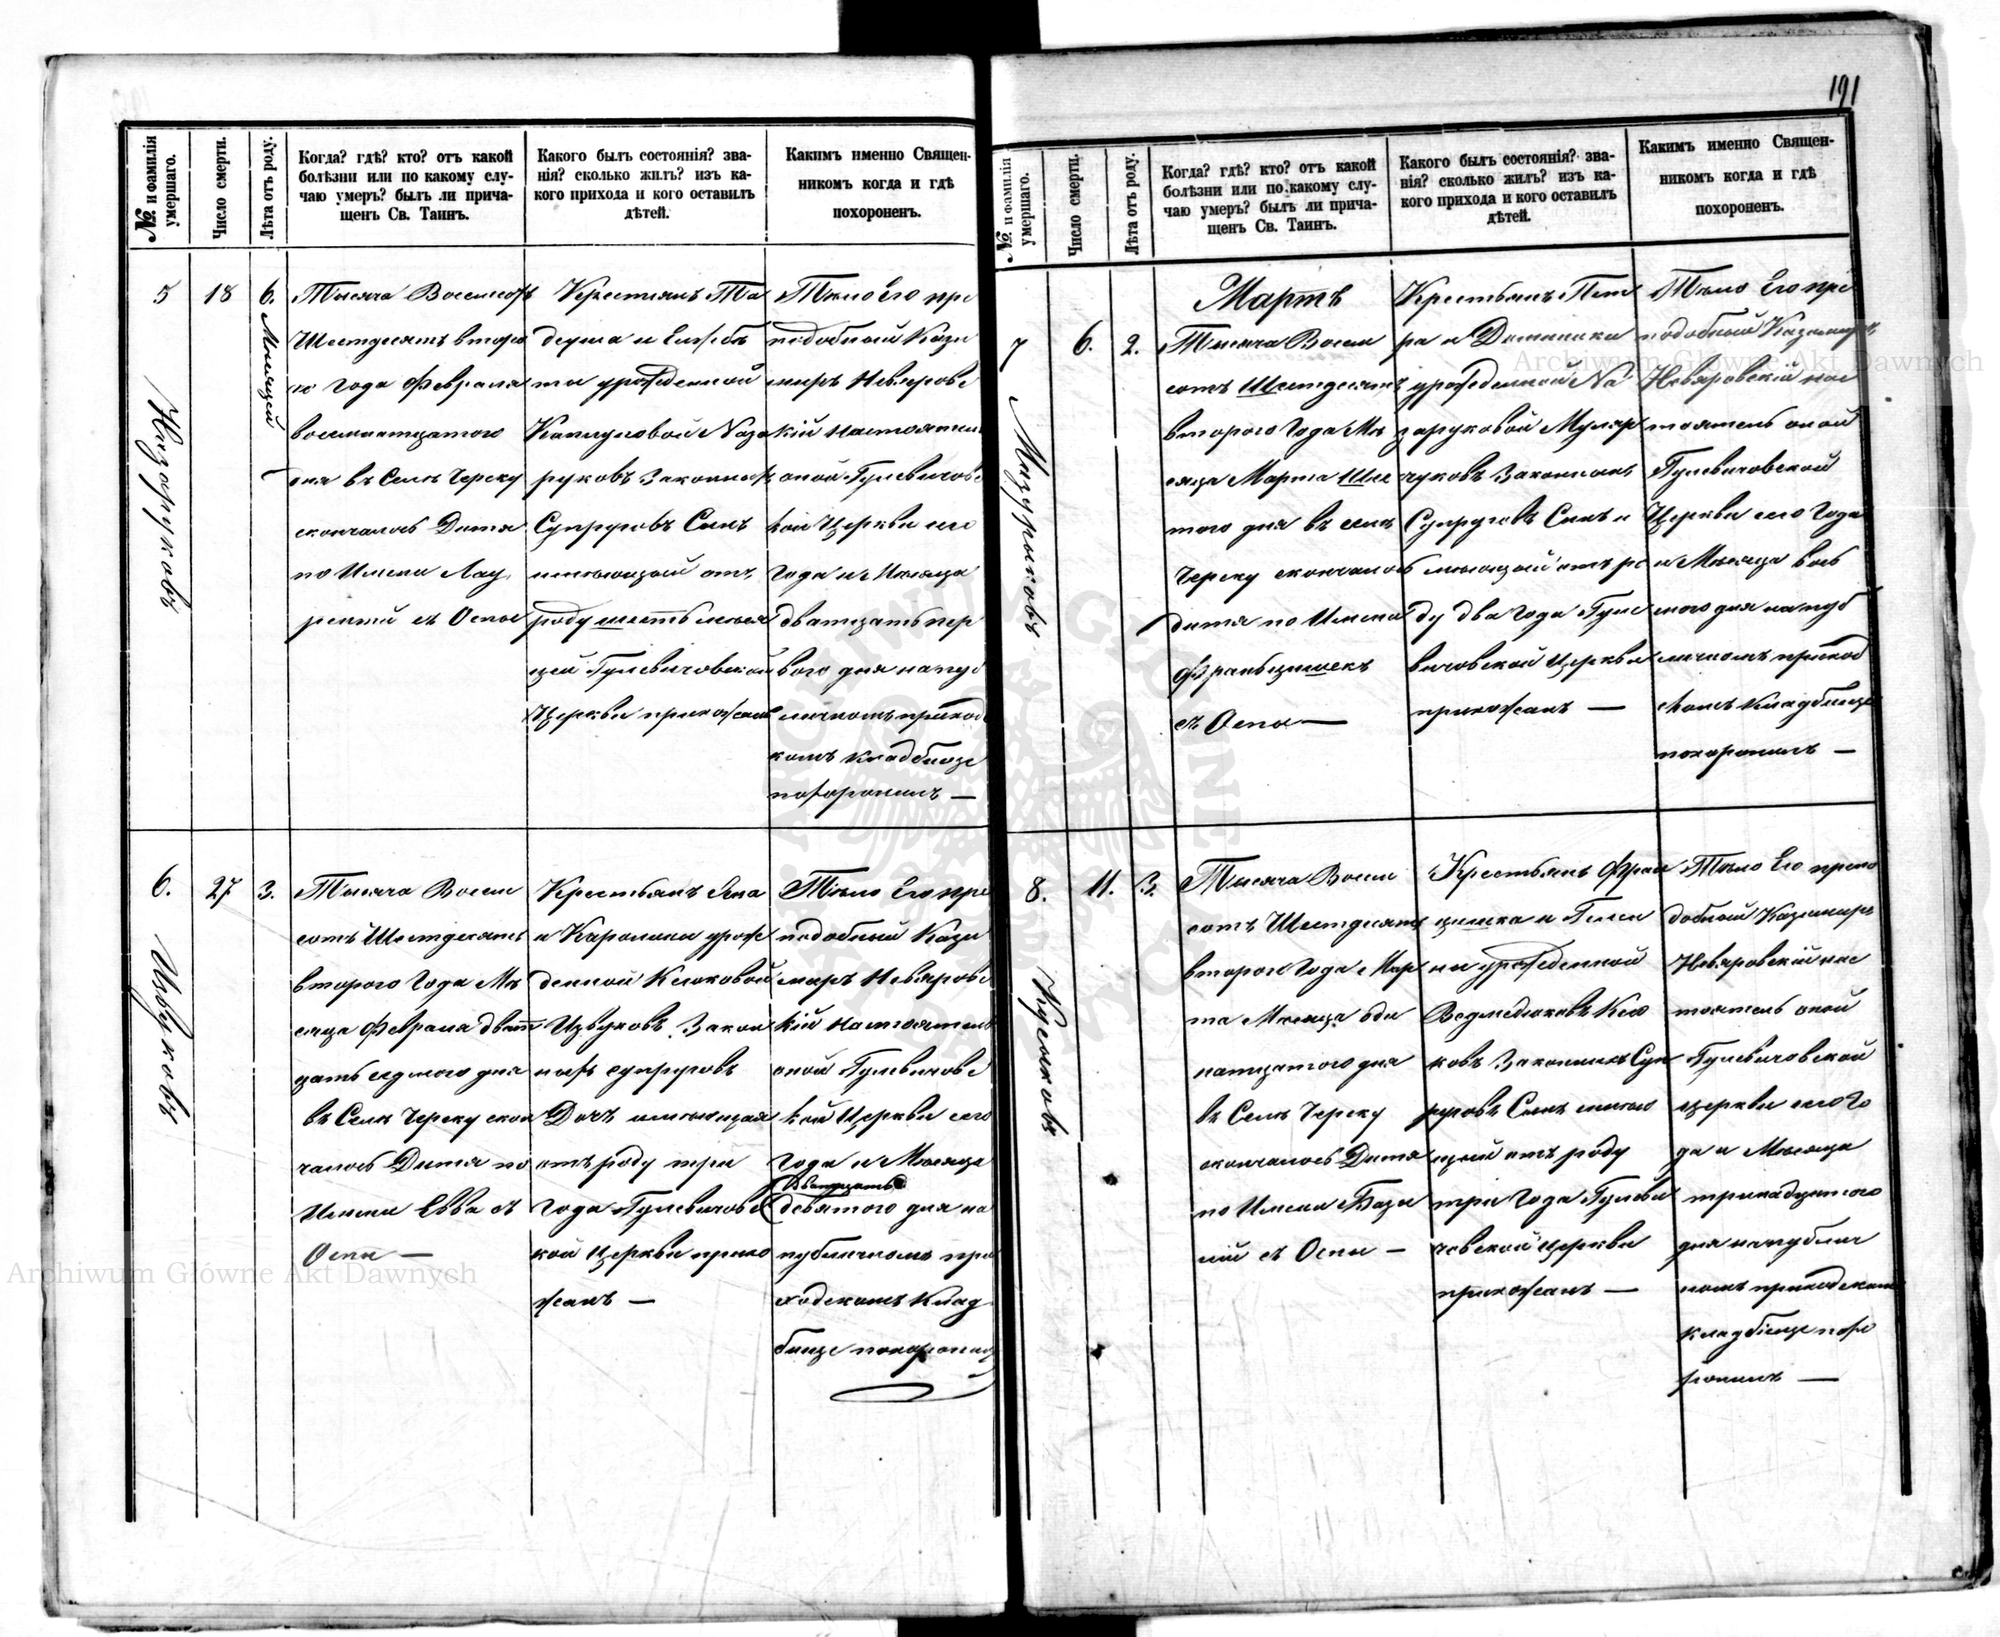 191
№ и фамилія умершаго.
Число смерти.
Лѣта отъ роду.
Когда? гдѣ? кто? отъ какой
болѣзни или по какому слу-
чаю умеръ? былъ ли прича-
щенъ Св. Таинъ.
Какого былъ состоянія? зва-
нія? сколько жилъ? изъ ка-
кого прихода и кого оставилъ
дѣтей.
Какимъ именно Священ-
никомъ когда и гдѣ
похороненъ.
5
Назаруковъ
18
6. Мѣсяцей
Тысяча Восемсотъ
Шестдесятъ второ
го Года Февраля
восемнатцатого
дня въ Селѣ Череку
скончалось Дитя
по Имени Лау
рентій съ Оспы
Крестьянъ Та
деуша и Елисебѣ
ты урожденной
Назаруковъ Законныхъ
Супруговъ Сынъ
имеющій отъ
роду шесть мѣся
цей Гулевичовской
Церкви прихожанъ
Тѣло Его пре
подобный Кази
миръ Невяровс
кій Настоятель
оной Гулевичовс
кой Церкви сего
Года и Мѣсяца
дватцать пер
вого дня на пуб
личномъ приход
комъ кладбище
похоронилъ —
6.
Извуковъ
27
3.
Тысяча Восем
сотъ Шестдесятъ
второго Года Мѣ
сяца Февраля дват
цать седмого дня
въ Селѣ Череку скон
чалось Дитя по
Имени Евва съ
Оспы —
Крестьянъ Яна
и Каролины урож
денной Клюковой
Извуковъ Закон
ныхъ супруговъ
Дочь имѣющая
отъ роду три
Года Гулевичовс
кой Церкви прихо
жанъ —
Тѣло Его пре
подобный Кази
миръ Невяровс
кій Настоятель
оной Гулевичовс
кой Церкви сего
Года и Мѣсяца
Дватцать
девятого дня на
публичномъ при
ходскомъ Клад
бище похоронилъ
№ и фамилія умершаго.
Число смерти.
Лѣта отъ роду.
Когда? гдѣ? кто? отъ какой
болѣзни или по какому слу-
чаю умеръ? былъ ли прича-
щенъ Св. Таинъ.
Какого былъ состоянія? зва-
нія? сколько жилъ? изъ ка-
кого прихода и кого оставилъ
дѣтей.
Какимъ именно Священ-
никомъ когда и гдѣ
похороненъ.
7
6.
2.
Мартъ
Тысяча Восем
сотъ Шестдесятъ
второго Года Мѣ
сяца Марта Шес
того дня въ селѣ
Череку скончалось
дитя по Имени
Францишекъ
съ Оспы —
Крестьянъ Пет
ра и Доминики
урожденной На
заруковой
Законныхъ
Супруговъ Сынъ и
мѣющій отъ ро
ду два Года Гуле
вичовской Церкви
прихожанъ —
Тѣло Его пре
подобный Казимиръ
Невяровскій нас
тоятель оной
Гулевичовской
Церкви сего Года
и Мѣсяца вось
мого дня на пуб
личномъ приход
скомъ Кладбище
похоронилъ —
8.
11.
3.
Тысяча Восем
сотъ Шестдесятъ
второго Года Мар
та Мѣсяца оди
натцатого дня
въ Селѣ Череку
скончалось Дитя
по Имени Бази
лій съ Оспы —
Крестьянъ Фран
цишка и
урожденной
Законныхъ Суп
руговъ Сынъ имѣю
щій отъ роду
три Года Гулеви
човской Церкви
прихожанъ —
Тѣло Его препо
добный Казимиръ
Невяровскій нас
тоятель оной
Гулевичовской
церкви сего Го
да и Мѣсяца
тринадцатого
дня на публич
номъ приходскомъ
кладбище похо
ронилъ —
Archiwum Główne Akt Dawnych
Archiwum Główne Akt Dawnych